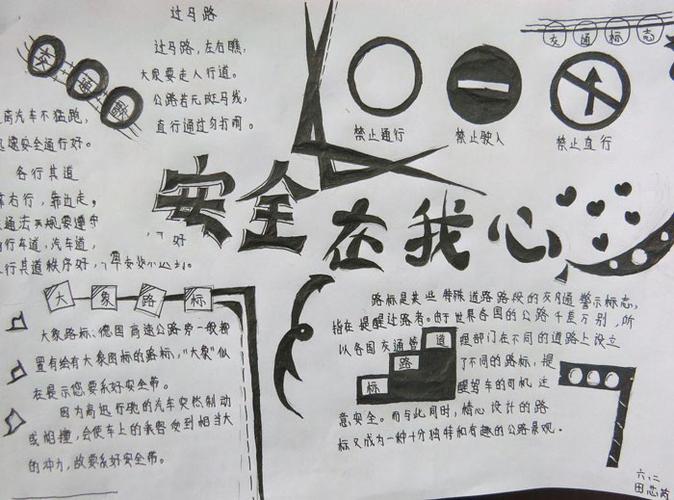 过马路
过马路,左右瞧,
大家要走人行道。
公路若无斑马线,
直行通过勿打闹。
交通
交通标志
禁止通行
禁止驶入
禁止直行
商汽车不猛跑,
速安全通行好。
各行其道
右行,靠边走,
通法规要遵守
行车道,汽车道,
行其道秩序好,
安全在我心
大象路标
大象路标、德国高速公路旁一般都
置有绘有大象图标的路标,"大象"似
在提示您要系好安带。
因为高速行驶的汽车突然制动
或相撞,会使车上的乘客受到相当大
的冲力,故要系好安带。
路标是某些特殊道路路段的交通警示标志,
指在提醒过路者。由于世界各国的公路千差万别,所
以各国交通管理部门在不同的道路上设立
了不同的路标,提
醒驾车的司机注
意安全。而与此同时,精心设计的路
标又成为一种十分独特和有趣的公路景观。
道
路
标
六、二